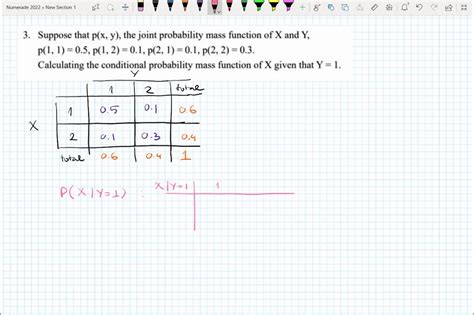 Numerade 2022 > New Section 1
3. Suppose that p(x, y), the joint probability mass function of X and Y,
p(1, 1) = 0.5, p(1, 2) = 0.1, p(2, 1) = 0.1, p(2, 2) = 0.3.
Calculating the conditional probability mass function of X given that Y = 1.
Y
1 2 total
X 1 0.5 0.1 0.6
2 0.1 0.3 0.4
total 0.6 0.4 1
P(X|Y=1) : X|Y=1 1